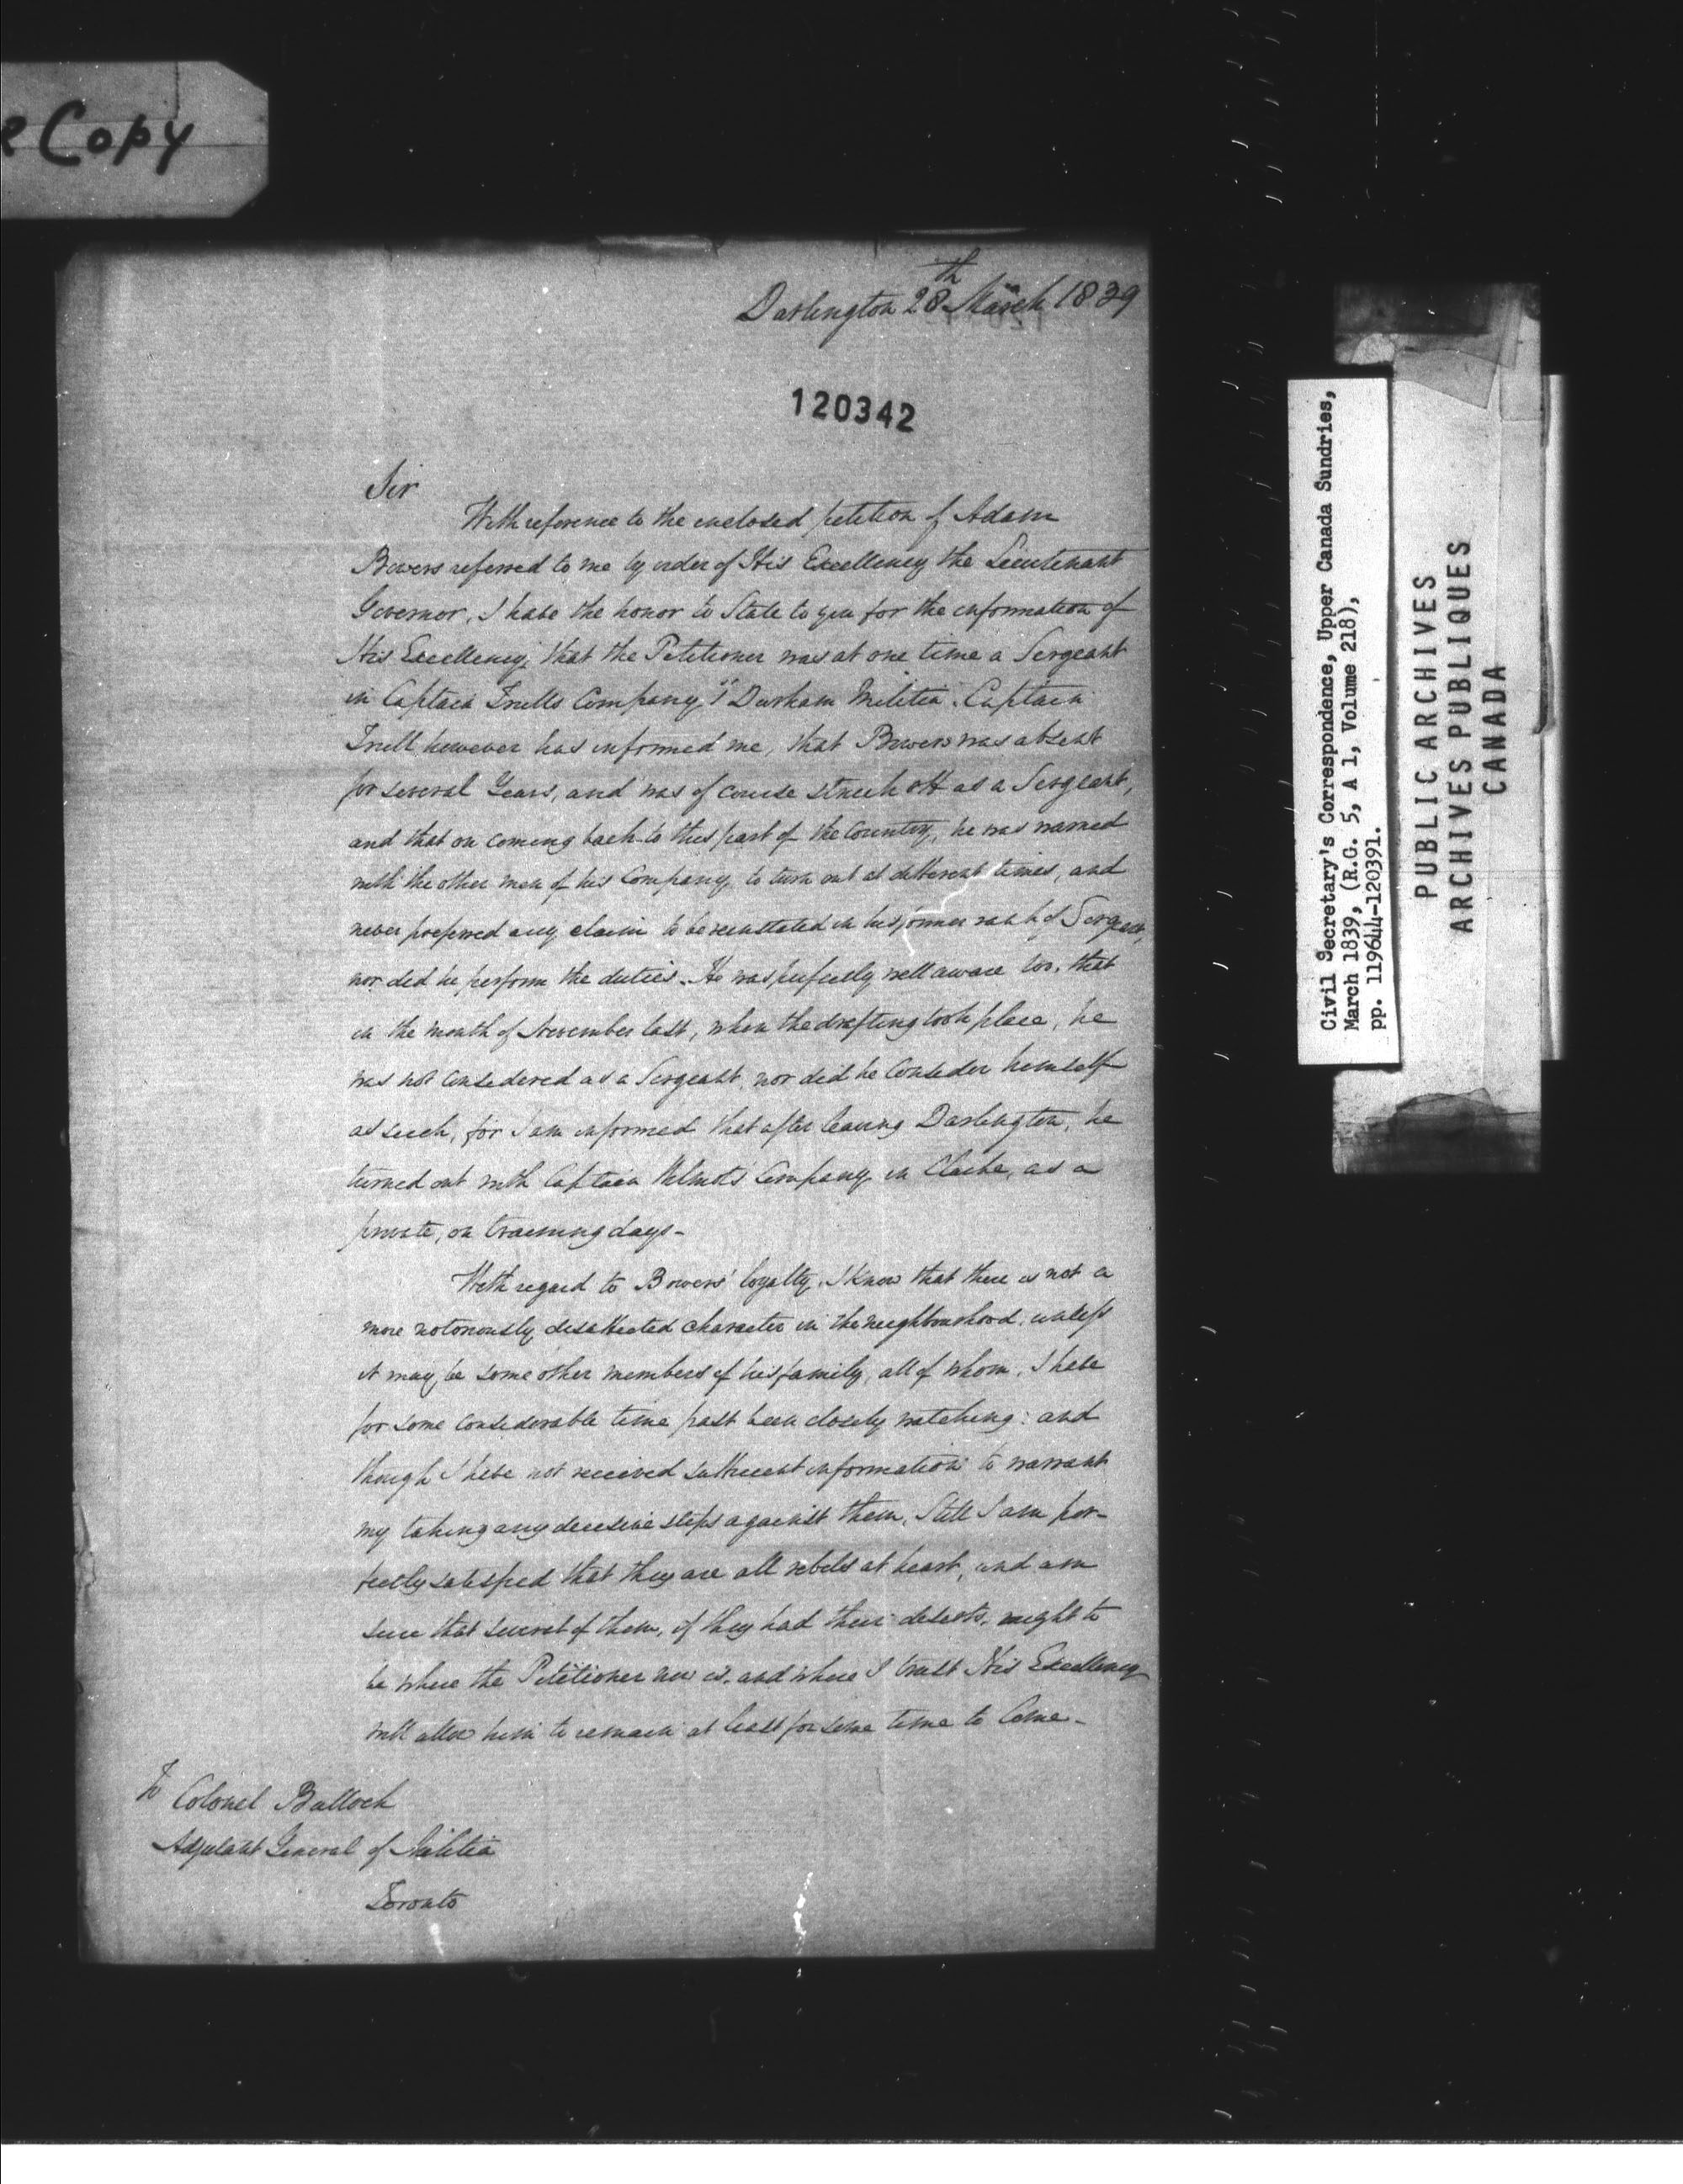 e Copy
Darlington 28th March 1839
120342
Sir
With reference to the enclosed petition of Adam
Bowers referred to me by order of His Excellency the Lieutenant
Governor, I have the honor to State to you for the information of
His Excellency, that the Petitioner was at one time a Sergeant
in Captain Trulls Company 1st Durham Militia. Captain
Trull however has informed me, that Bowers was absent
for several Years, and was of course struck off as a Sergeant,
and that on coming back to this part of the Country, he was warned
with the other men of his Company to turn out at different times, and
never preferred any claim to be reinstated in his former rank of Sergeant,
nor did he perform the duties. He was perfectly well aware too, that
in the month of November last, when the drafting took place, he
was not considered as a Sergeant, nor did he Consider himself
as such, for I am informed that after leaving Darlington, he
turned out with Captain Wilmot's Company in Clarke, as a
private, on training days-
With regard to Bowers' loyalty, I know that there is not a
more notoriously disaffected character in the neighbourhood, unless
it may be some other members of his family, all of whom, I have
for some considerable time past been closely watching: and
though I have not received sufficient information to warrant
my taking any decisive steps against them, Still I am per-
fectly satisfied that they are all rebels at heart, and am
sure that several of them, if they had their deserts, ought to
be where the Petitioner now is, and where I trust His Excellency
will allow him to remain at least for some time to Come-
To Colonel Bullock
Adjutant General of Militia
Toronto
Civil Secretary's Correspondence, Upper Canada Sundries,
March 1839, (R.G. 5, A 1, Volume 218),
pp. 119644-120391.
PUBLIC ARCHIVES
ARCHIVES PUBLIQUES
CANADA